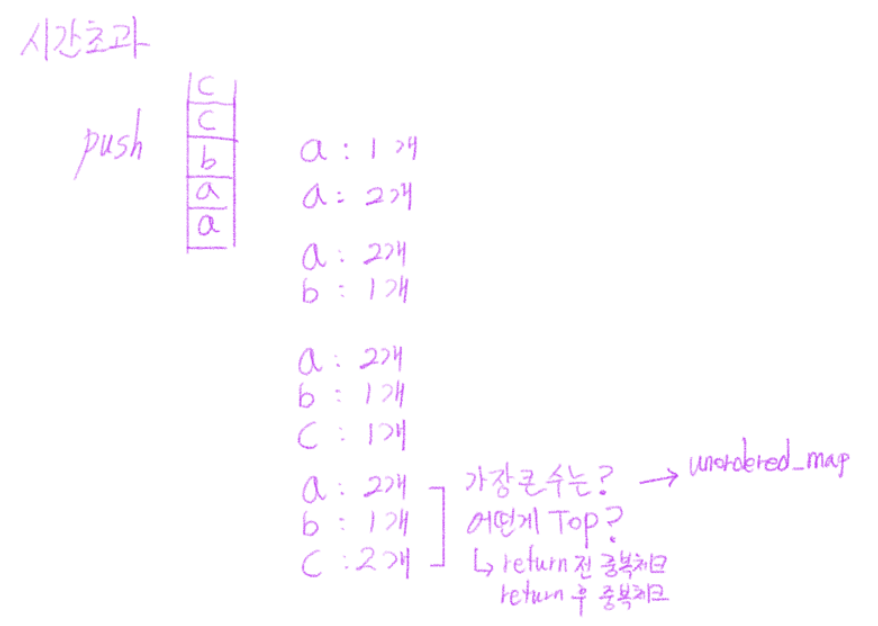 시간초과
push
c
c
b
a
a
a : 1개
a : 2개
a : 2개
b : 1개
a : 2개
b : 1개
c : 1개
a : 2개
b : 1개
c : 2개
가장 큰 수는? → unordered_map
어떤게 Top?
↳ return 전 중복체크
return 후 중복체크